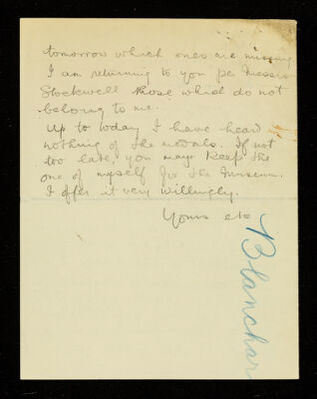 tomorrow which ones are missing
I am returning to you per Messrs
Stockwell those which do not
belong to me.
Up to today I have heard
nothing of the medals. If not
too late, you may keep the
one of myself for the Museum.
I offer it very willingly.
Yours etc
Blanchar